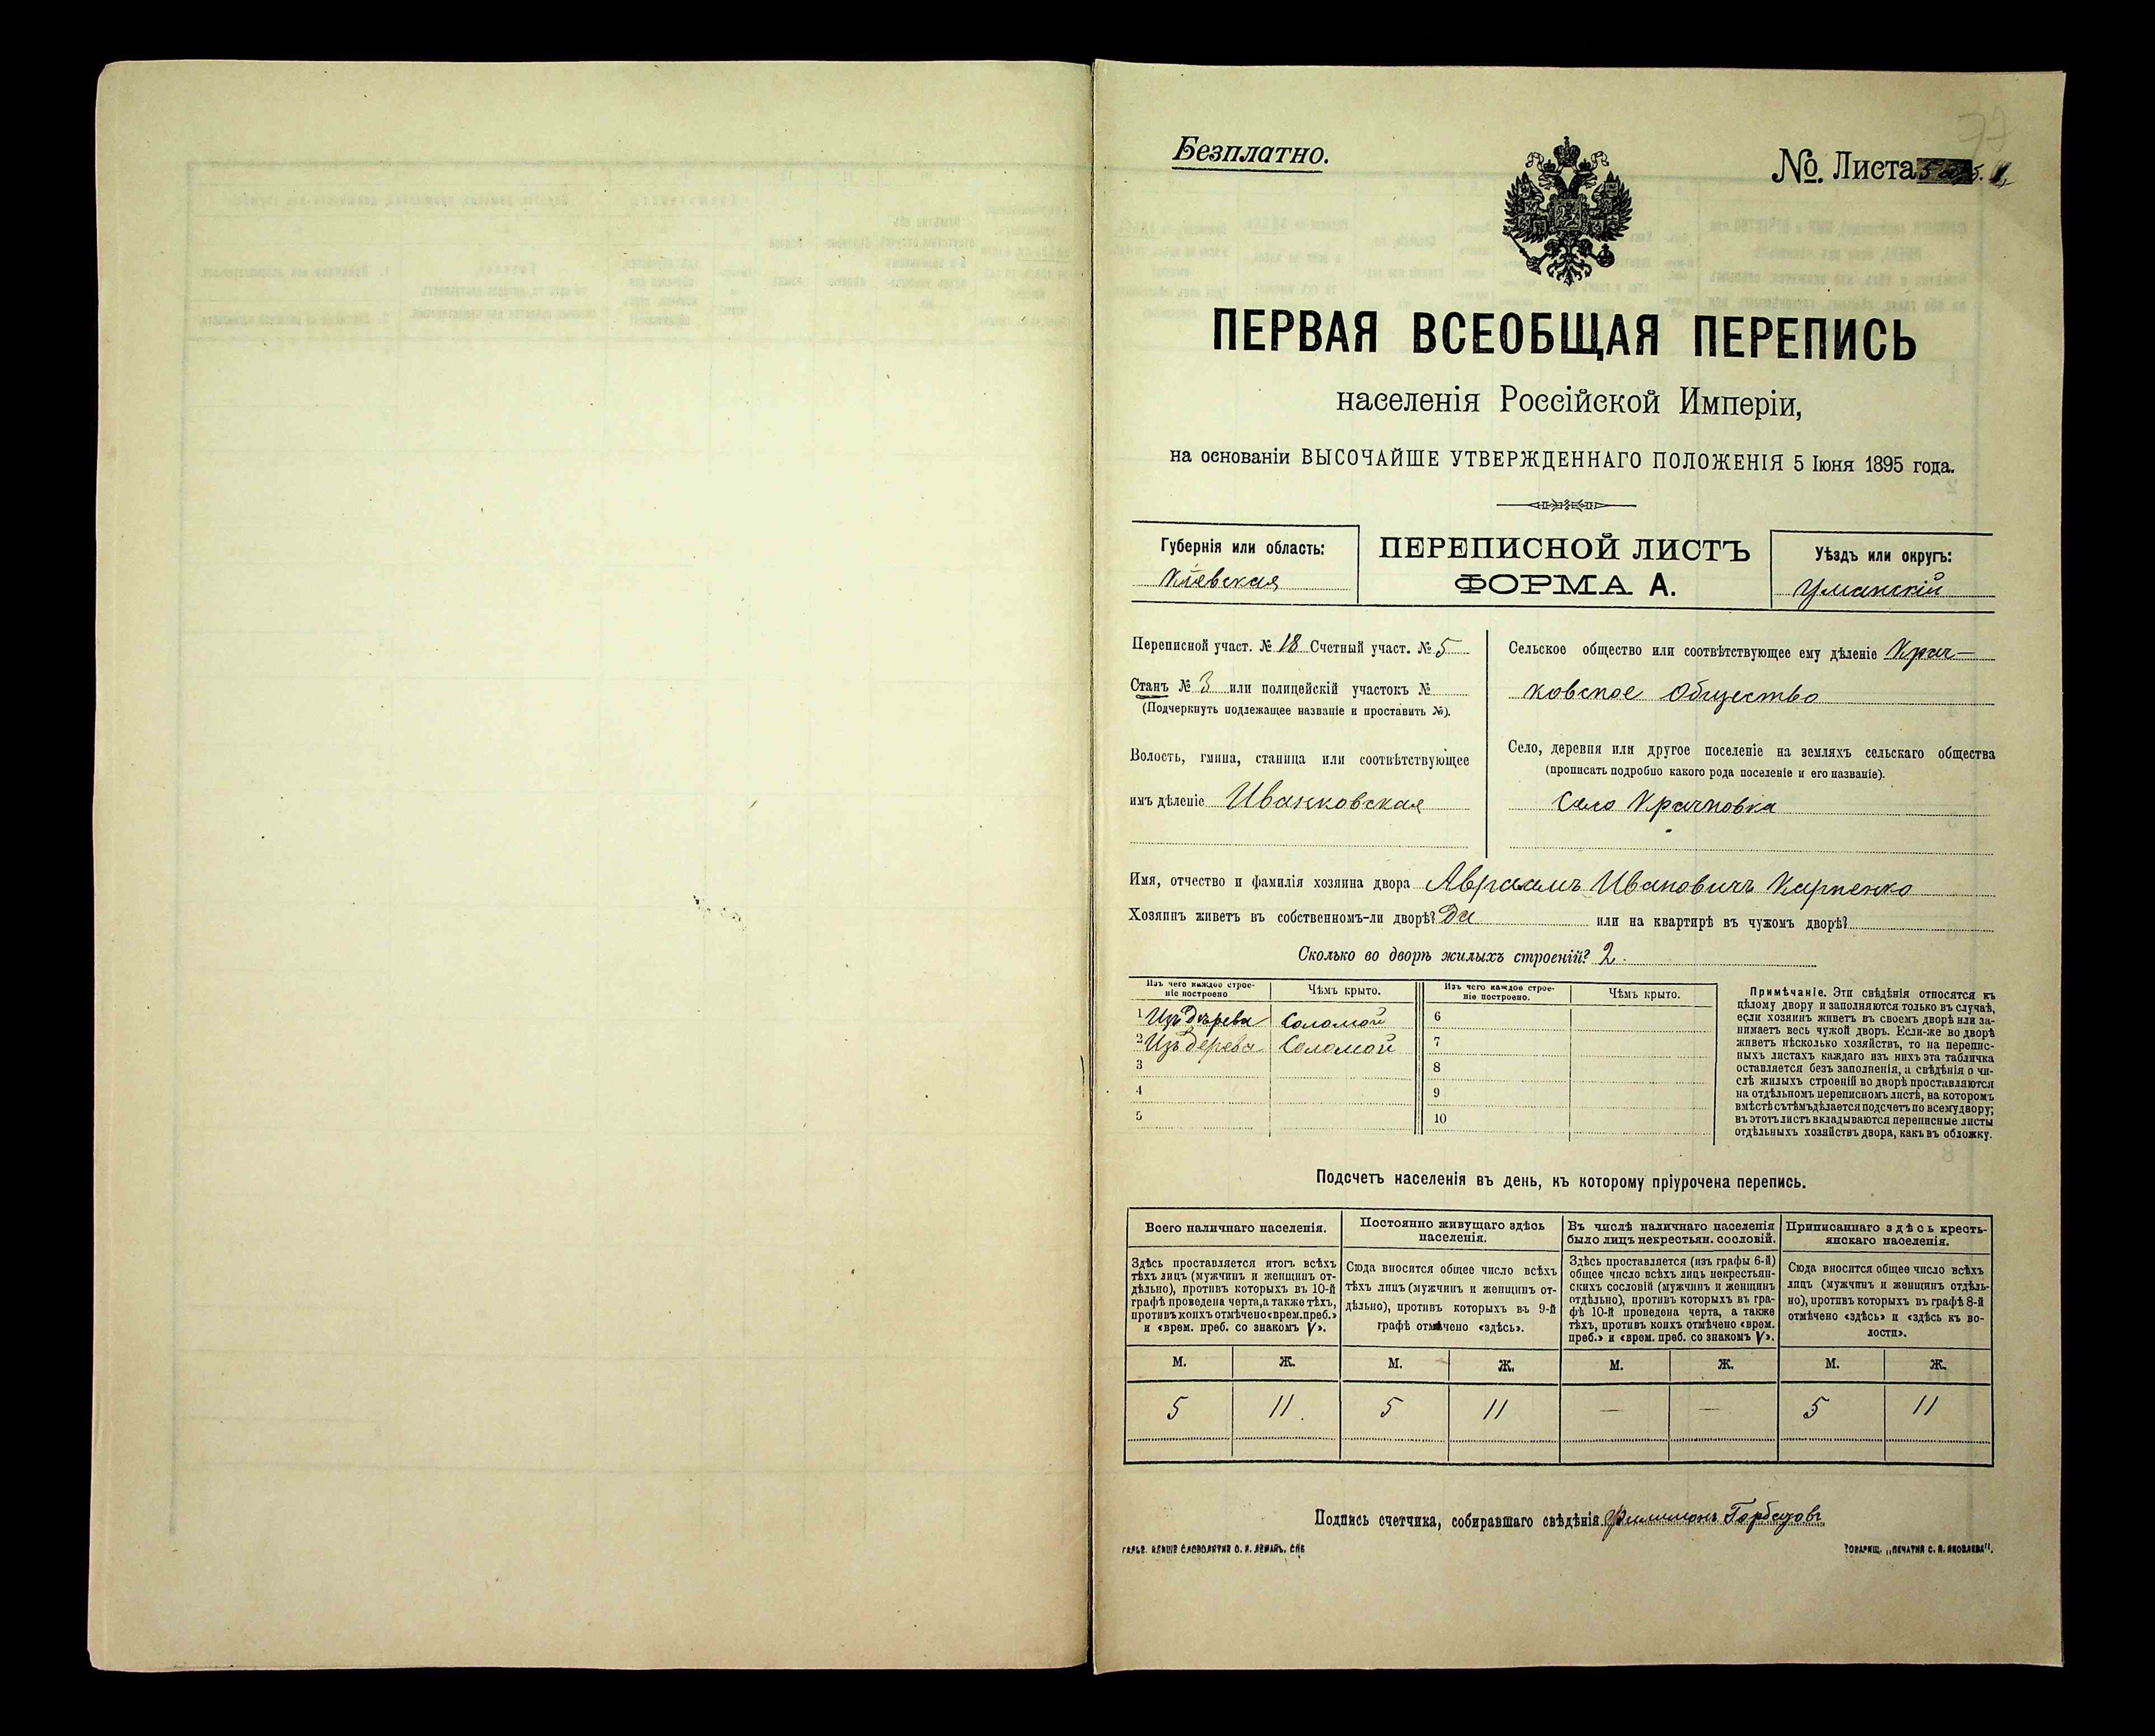 Безплатно.
№. Листа
ПЕРВАЯ ВСЕОБЩАЯ ПЕРЕПИСЬ
населенія Россійской Имперіи,
на основаніи ВЫСОЧАЙШЕ УТВЕРЖДЕННАГО ПОЛОЖЕНІЯ 5 Іюня 1895 года.
Губернія или область:
Кіевская
ПЕРЕПИСНОЙ ЛИСТЪ
ФОРМА А.
Уѣздъ или округъ:
Уманскій
Переписной участ. № 18 Счетный участ. № 5
Станъ № 3 или полицейскій участокъ №
(Подчеркнуть подлежащее названіе и проставить №).
Волость, гмина, станица или соотвѣтствующее
имъ дѣленіе Иванковская
Сельское общество или соотвѣтствующее ему дѣленіе Крач-
ковское Общество
Село, деревня или другое поселеніе на земляхъ сельскаго общества
(прописать подробно какого рода поселеніе и его названіе).
Село Крачковка
Имя, отчество и фамилія хозяина двора Авраамъ Ивановичъ Карпенко
Хозяинъ живетъ въ собственномъ-ли дворѣ? Да или на квартирѣ въ чужомъ дворѣ?
Сколько во дворѣ жилыхъ строеній? 2.
Изъ чего каждое строе-
ніе построено
Чѣмъ крыто.
Изъ чего каждое строе-
ніе построено.
Чѣмъ крыто.
1 Изъ дерева Соломой 6
2 Изъ дерева Соломой 7
3 8
4 9
5 10
Примѣчаніе. Эти свѣдѣнія относятся къ
цѣлому двору и заполняются только въ случаѣ,
если хозяинъ живетъ въ своемъ дворѣ или за-
нимаетъ весь чужой дворъ. Если-же во дворѣ
живетъ нѣсколько хозяйствъ, то на перепис-
ныхъ листахъ каждаго изъ нихъ эта табличка
оставляется безъ заполненія, а свѣдѣнія о чи-
слѣ жилыхъ строеній во дворѣ проставляются
на отдѣльномъ переписномъ листѣ, на которомъ
вмѣстѣ съ тѣмъ дѣлается подсчетъ по всему двору;
въ этотъ листъ вкладываются переписные листы
отдѣльныхъ хозяйствъ двора, какъ въ обложку.
Подсчетъ населенія въ день, къ которому пріурочена перепись.
Всего наличнаго населенія.
Здѣсь проставляется итогъ всѣхъ
тѣхъ лицъ (мужчинъ и женщинъ от-
дѣльно), противъ которыхъ въ 10-й
графѣ проведена черта, а также тѣхъ,
противъ коихъ отмѣчено «врем. преб.»
и «врем. преб. со знакомъ V».
Постоянно живущаго здѣсь
населенія.
Сюда вносится общее число всѣхъ
тѣхъ лицъ (мужчинъ и женщинъ от-
дѣльно), противъ которыхъ въ 9-й
графѣ отмѣчено «здѣсь».
Въ числѣ наличнаго населенія
было лицъ некрестьян. сословій.
Здѣсь проставляется (изъ графы 6-й)
общее число всѣхъ лицъ некрестьян-
скихъ сословій (мужчинъ и женщинъ
отдѣльно), противъ которыхъ въ гра-
фѣ 10-й проведена черта, а также
тѣхъ, противъ коихъ отмѣчено «врем.
преб.» и «врем. преб. со знакомъ V».
Приписаннаго здѣсь кресть-
янскаго населенія.
Сюда вносится общее число всѣхъ
лицъ (мужчинъ и женщинъ отдѣль-
но), противъ которыхъ въ графѣ 8-й
отмѣчено «здѣсь» и «здѣсь къ во-
лости».
М. Ж. М. Ж. М. Ж. М. Ж.
5 11 5 11 — — 5 11
Подпись счетчика, собиравшаго свѣдѣнія Филимонъ
ТОВАРИЩ. „ПЕЧАТНЯ С. П. ЯКОВЛЕВА".